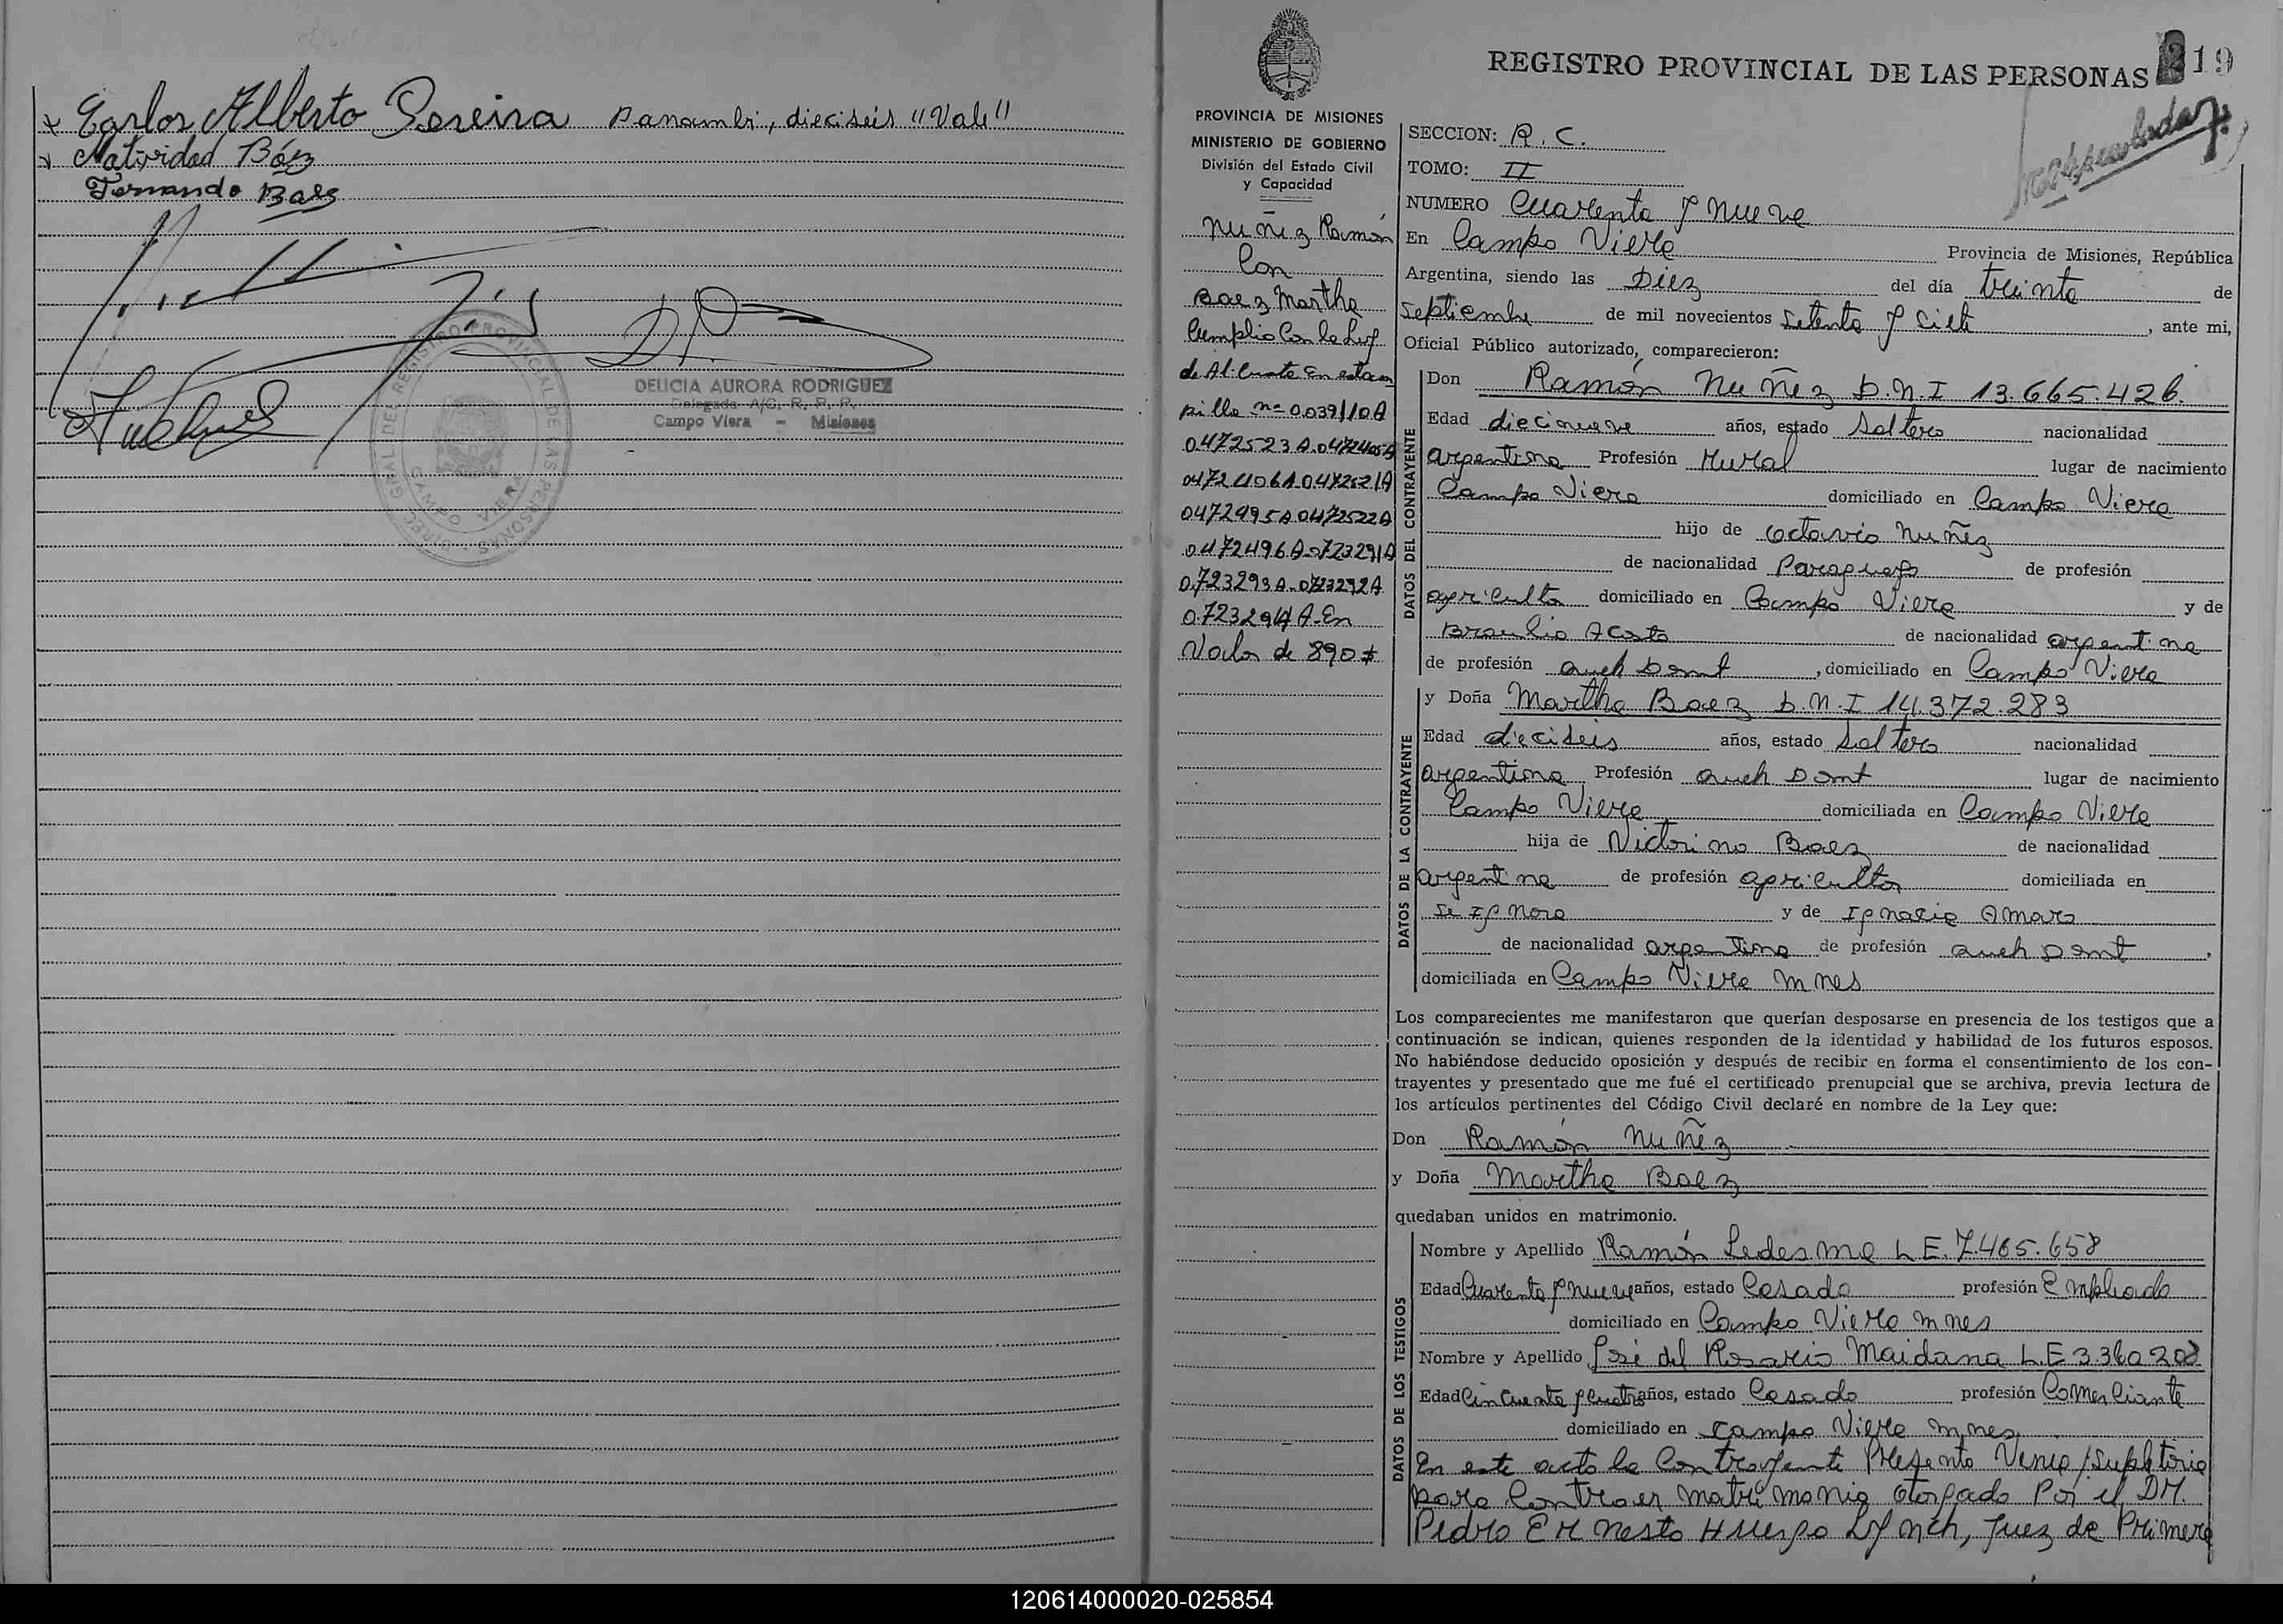 Carlos Alberto Pereira Panambi, dieciseis "Vale"
Natividad Báez
Fernando Baez
DIREC. GRAL. DEL REGISTRO PROVINCIAL DE LAS PERSONAS
CAMPO VIERA
DELICIA AURORA RODRIGUEZ
Delegada A/C. R. P. P.
Campo Viera - Misiones
REGISTRO PROVINCIAL DE LAS PERSONAS
19
PROVINCIA DE MISIONES
MINISTERIO DE GOBIERNO
División del Estado Civil
y Capacidad
Nuñez Ramón
Con
Baez Martha
Cumplio Con la Ley
de Al. Cuota en estam
pilla nº 0.039110A
0472523A.0472405A
0472406A.0472521A
0472495A.0472522A
0472496A-0723291A
0.723293A-0723292A
0.723294A-En
Valor de 890$
SECCION: R. C.
TOMO: II
NUMERO Cuarenta y nueve
En Campo Viera Provincia de Misiones, República
Argentina, siendo las Diez del día treinta de
Septiembre de mil novecientos Setenta y Siete, ante mi,
Oficial Público autorizado, comparecieron:
DATOS DEL CONTRAYENTE
Don Ramón Nuñez D.N.I 13.665.426.
Edad diecinueve años, estado Soltero nacionalidad
argentina Profesión Rural lugar de nacimiento
Campo Viera domiciliado en Campo Viera
hijo de Octavio Nuñez
de nacionalidad Paraguayo de profesión
agricultor domiciliado en Campo Viera y de
Braulia Acosta de nacionalidad argentina
de profesión queh Domt, domiciliado en Campo Viera
DATOS DE LA CONTRAYENTE
y Doña Martha Baez D.N.I 14.372.283
Edad dieciseis años, estado Soltera nacionalidad
argentina Profesión queh Domt lugar de nacimiento
Campo Viera domiciliada en Campo Viera
hija de Victorino Baez de nacionalidad
argentina de profesión agricultor domiciliada en
se Ignora y de Ignacia Amaro
de nacionalidad argentina de profesión queh Domt,
domiciliada en Campo Viera Mnes
Los comparecientes me manifestaron que querían desposarse en presencia de los testigos que a
continuación se indican, quienes responden de la identidad y habilidad de los futuros esposos.
No habiéndose deducido oposición y después de recibir en forma el consentimiento de los con-
trayentes y presentado que me fué el certificado prenupcial que se archiva, previa lectura de
los artículos pertinentes del Código Civil declaré en nombre de la Ley que:
Don Ramón Nuñez
y Doña Martha Baez
quedaban unidos en matrimonio.
DATOS DE LOS TESTIGOS
Nombre y Apellido Ramón Ledesma L.E. 7.465.658
Edad Cuarenta y nueve años, estado Casado profesión Empleado
domiciliado en Campo Viera Mnes
Nombre y Apellido José del Rosario Maidana L.E 3.360.208
Edad Cincuenta y Cuatro años, estado Casado profesión Comerciante
domiciliado en Campo Viera Mnes
En este acto la Contrayente Presenta Venia Supletoria
para Contraer matrimonio otorgado Por el DR.
Pedro Ernesto Huergo Lynch, Juez de Primera
120614000020-025854